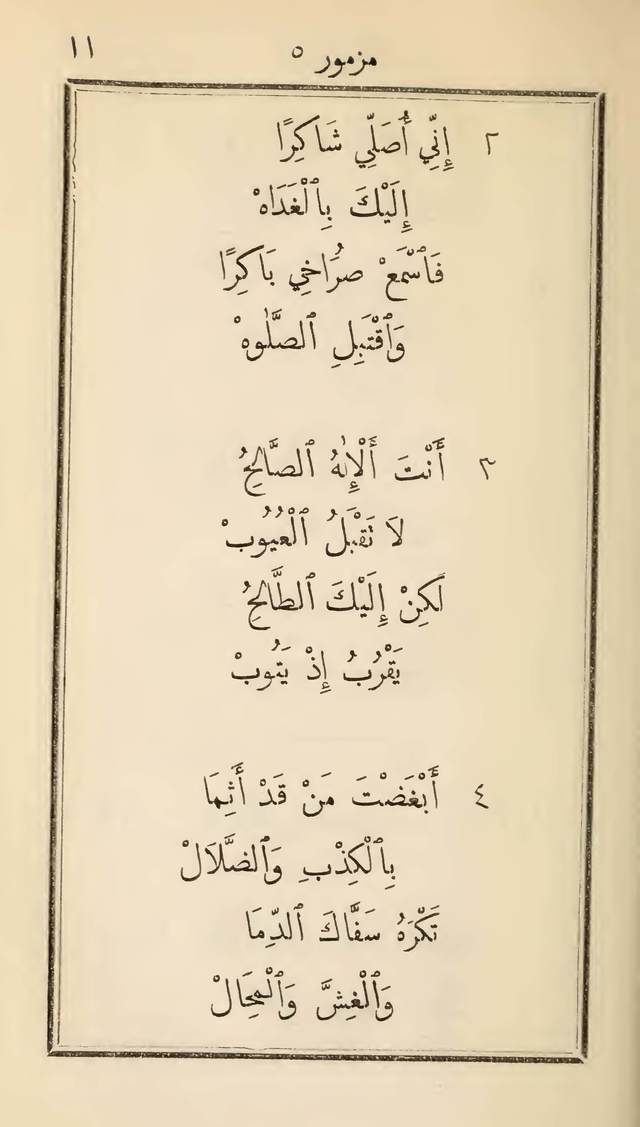 مزمور ٥ ١١
٢ إِنِّي أُصَلِّي شَاكِرًا
إِلَيْكَ بِٱلْغَدَاهْ
فَٱسْمَعْ صُرَاخِي بَاكِرًا
وَٱقْتَبِلِ ٱلصَّلٰوهْ
٣ أَنْتَ أَلْإِلٰهُ ٱلصَّالِحُ
لَا تَقْبَلُ ٱلْعُيُوبْ
لٰكِنْ إِلَيْكَ ٱلطَّالِحُ
يَقْرُبُ إِذْ يَتُوبْ
٤ أَبْغَضْتَ مَنْ قَدْ أَثِمَا
بِٱلْكِذْبِ وَٱلضَّلَالْ
تَكْرَهُ سَفَّاكَ ٱلدِّمَا
وَٱلْغِشَّ وَٱلْمِحَالْ